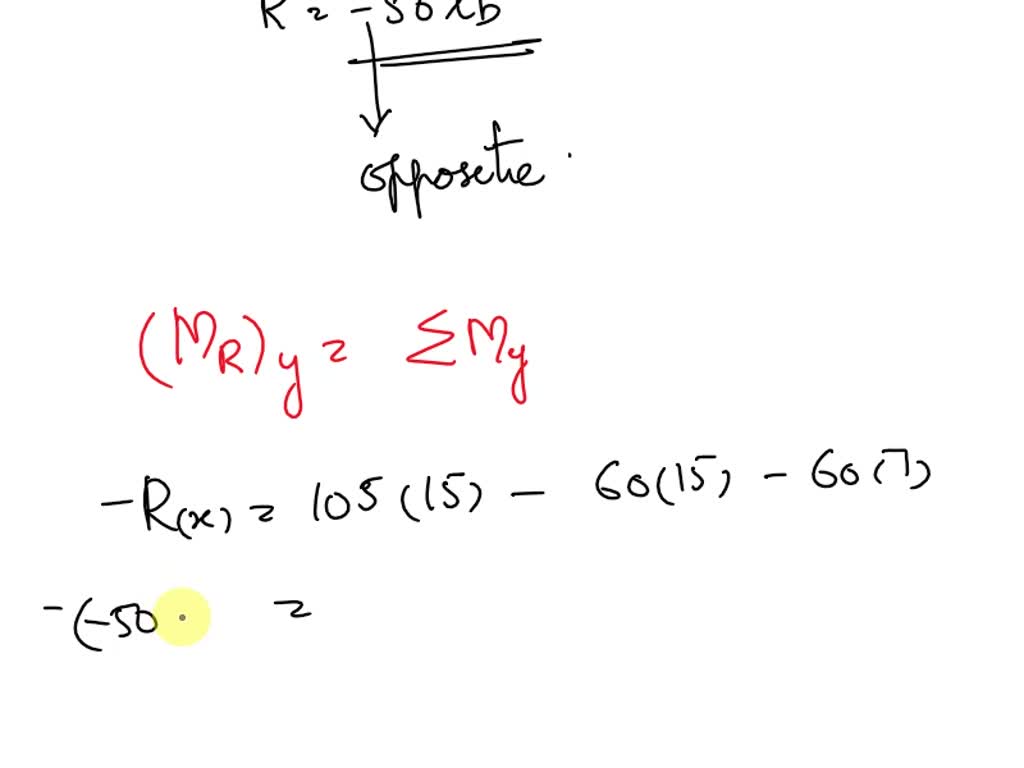 R = -50 lb
opposite.
(MR)y = ΣMy
-R(x) = 105(15) - 60(15) - 60(7)
-(-50 =